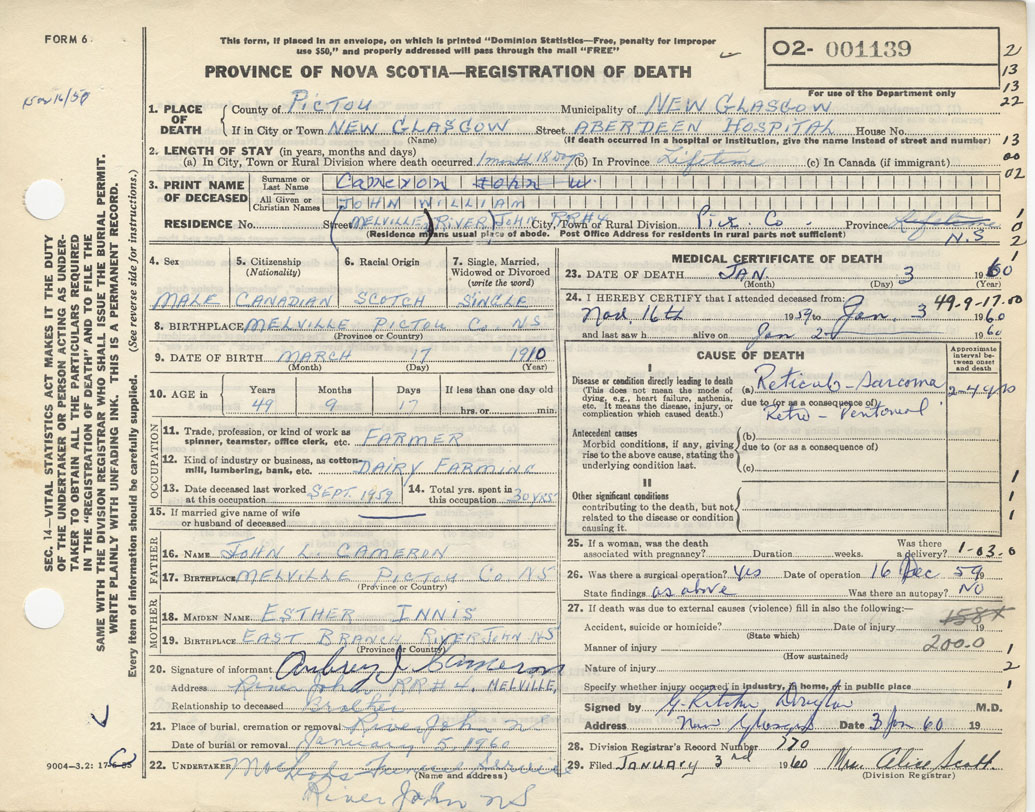 FORM 6
This form, if placed in an envelope, on which is printed "Dominion Statistics—Free, penalty for improper
use $50," and properly addressed will pass through the mail "FREE"
02- 001139
For use of the Department only
PROVINCE OF NOVA SCOTIA—REGISTRATION OF DEATH
Nov 16/59
SEC. 14—VITAL STATISTICS ACT MAKES IT THE DUTY
OF THE UNDERTAKER OR PERSON ACTING AS UNDER-
TAKER TO OBTAIN ALL THE PARTICULARS REQUIRED
IN THE "REGISTRATION OF DEATH" AND TO FILE THE
SAME WITH THE DIVISION REGISTRAR WHO SHALL ISSUE THE BURIAL PERMIT.
WRITE PLAINLY WITH UNFADING INK. THIS IS A PERMANENT RECORD.
Every item of information should be carefully supplied. (See reverse side for instructions.)
1. PLACE OF DEATH County of PICTOU Municipality of NEW GLASGOW
If in City or Town NEW GLASGOW Street ABERDEEN HOSPITAL House No.
(Name) (If death occurred in a hospital or institution, give the name instead of street and number)
2. LENGTH OF STAY (in years, months and days)
(a) In City, Town or Rural Division where death occurred 1 month 18 days (b) In Province Lifetime (c) In Canada (if immigrant)
3. PRINT NAME OF DECEASED Surname or Last Name Cameron John W
All Given or Christian Names JOHN WILLIAM
RESIDENCE No. Street (MELVILLE) RIVER JOHN RR#4 City, Town or Rural Division Pict. Co Province Lifetime
N.S
(Residence means usual place of abode. Post Office Address for residents in rural parts not sufficient)
4. Sex MALE
5. Citizenship (Nationality) CANADIAN
6. Racial Origin SCOTCH
7. Single, Married, Widowed or Divorced (write the word) SINGLE
8. BIRTHPLACE MELVILLE PICTOU Co. NS
(Province or Country)
9. DATE OF BIRTH MARCH 17 1910
(Month) (Day) (Year)
10. AGE in Years 49 Months 9 Days 17 If less than one day old hrs. or min.
OCCUPATION
11. Trade, profession, or kind of work as spinner, teamster, office clerk, etc. FARMER
12. Kind of industry or business, as cotton-mill, lumbering, bank, etc. DAIRY FARMING
13. Date deceased last worked at this occupation SEPT. 1959 14. Total yrs. spent in this occupation 30 YRS
15. If married give name of wife or husband of deceased
FATHER
16. NAME JOHN L. CAMERON
17. BIRTHPLACE MELVILLE PICTOU Co NS
(Province or Country)
MOTHER
18. MAIDEN NAME ESTHER INNIS
19. BIRTHPLACE EAST BRANCH RIVER JOHN NS
(Province or Country)
20. Signature of informant Aubrey J Cameron
Address River John, RR#4, MELVILLE,
Relationship to deceased Brother
21. Place of burial, cremation or removal River John n.s
Date of burial or removal January 5, 1960
22. UNDERTAKER Funeral Service
(Name and address)
River John NS
9004-3.2:
MEDICAL CERTIFICATE OF DEATH
23. DATE OF DEATH JAN. 3 1960
(Month) (Day) (Year)
24. I HEREBY CERTIFY that I attended deceased from: 49-9-17.00
Nov. 16th 1959 to Jan. 3 1960
and last saw h alive on Jan 2 1960
CAUSE OF DEATH
Approximate interval between onset and death
I
Disease or condition directly leading to death (a) Reticulo-Sarcoma
(This does not mean the mode of dying, e.g., heart failure, asthenia, etc. It means the disease, injury, or complication which caused death.)
due to (or as a consequence of)
Retro-Peritoneal
Antecedent causes
Morbid conditions, if any, giving rise to the above cause, stating the underlying condition last.
(b)
due to (or as a consequence of)
(c)
II
Other significant conditions
contributing to the death, but not related to the disease or condition causing it.
25. If a woman, was the death associated with pregnancy? Duration weeks. Was there a delivery? 1-03.0
26. Was there a surgical operation? Yes Date of operation 16 Dec 59
State findings as above Was there an autopsy? NO
27. If death was due to external causes (violence) fill in also the following:—
Accident, suicide or homicide? Date of injury 19
(State which)
Manner of injury 200.0
(How sustained)
Nature of injury
Specify whether injury occurred in industry, in home, or in public place
Signed by M.D.
Address New Glasgow Date 3 Jan 60 19
28. Division Registrar's Record Number 770
29. Filed JANUARY 3rd 1960 Mrs. Celice Scott
(Division Registrar)
2
13
13
22
13
00
02
1
0
2
1
1
1
1
1
2
1